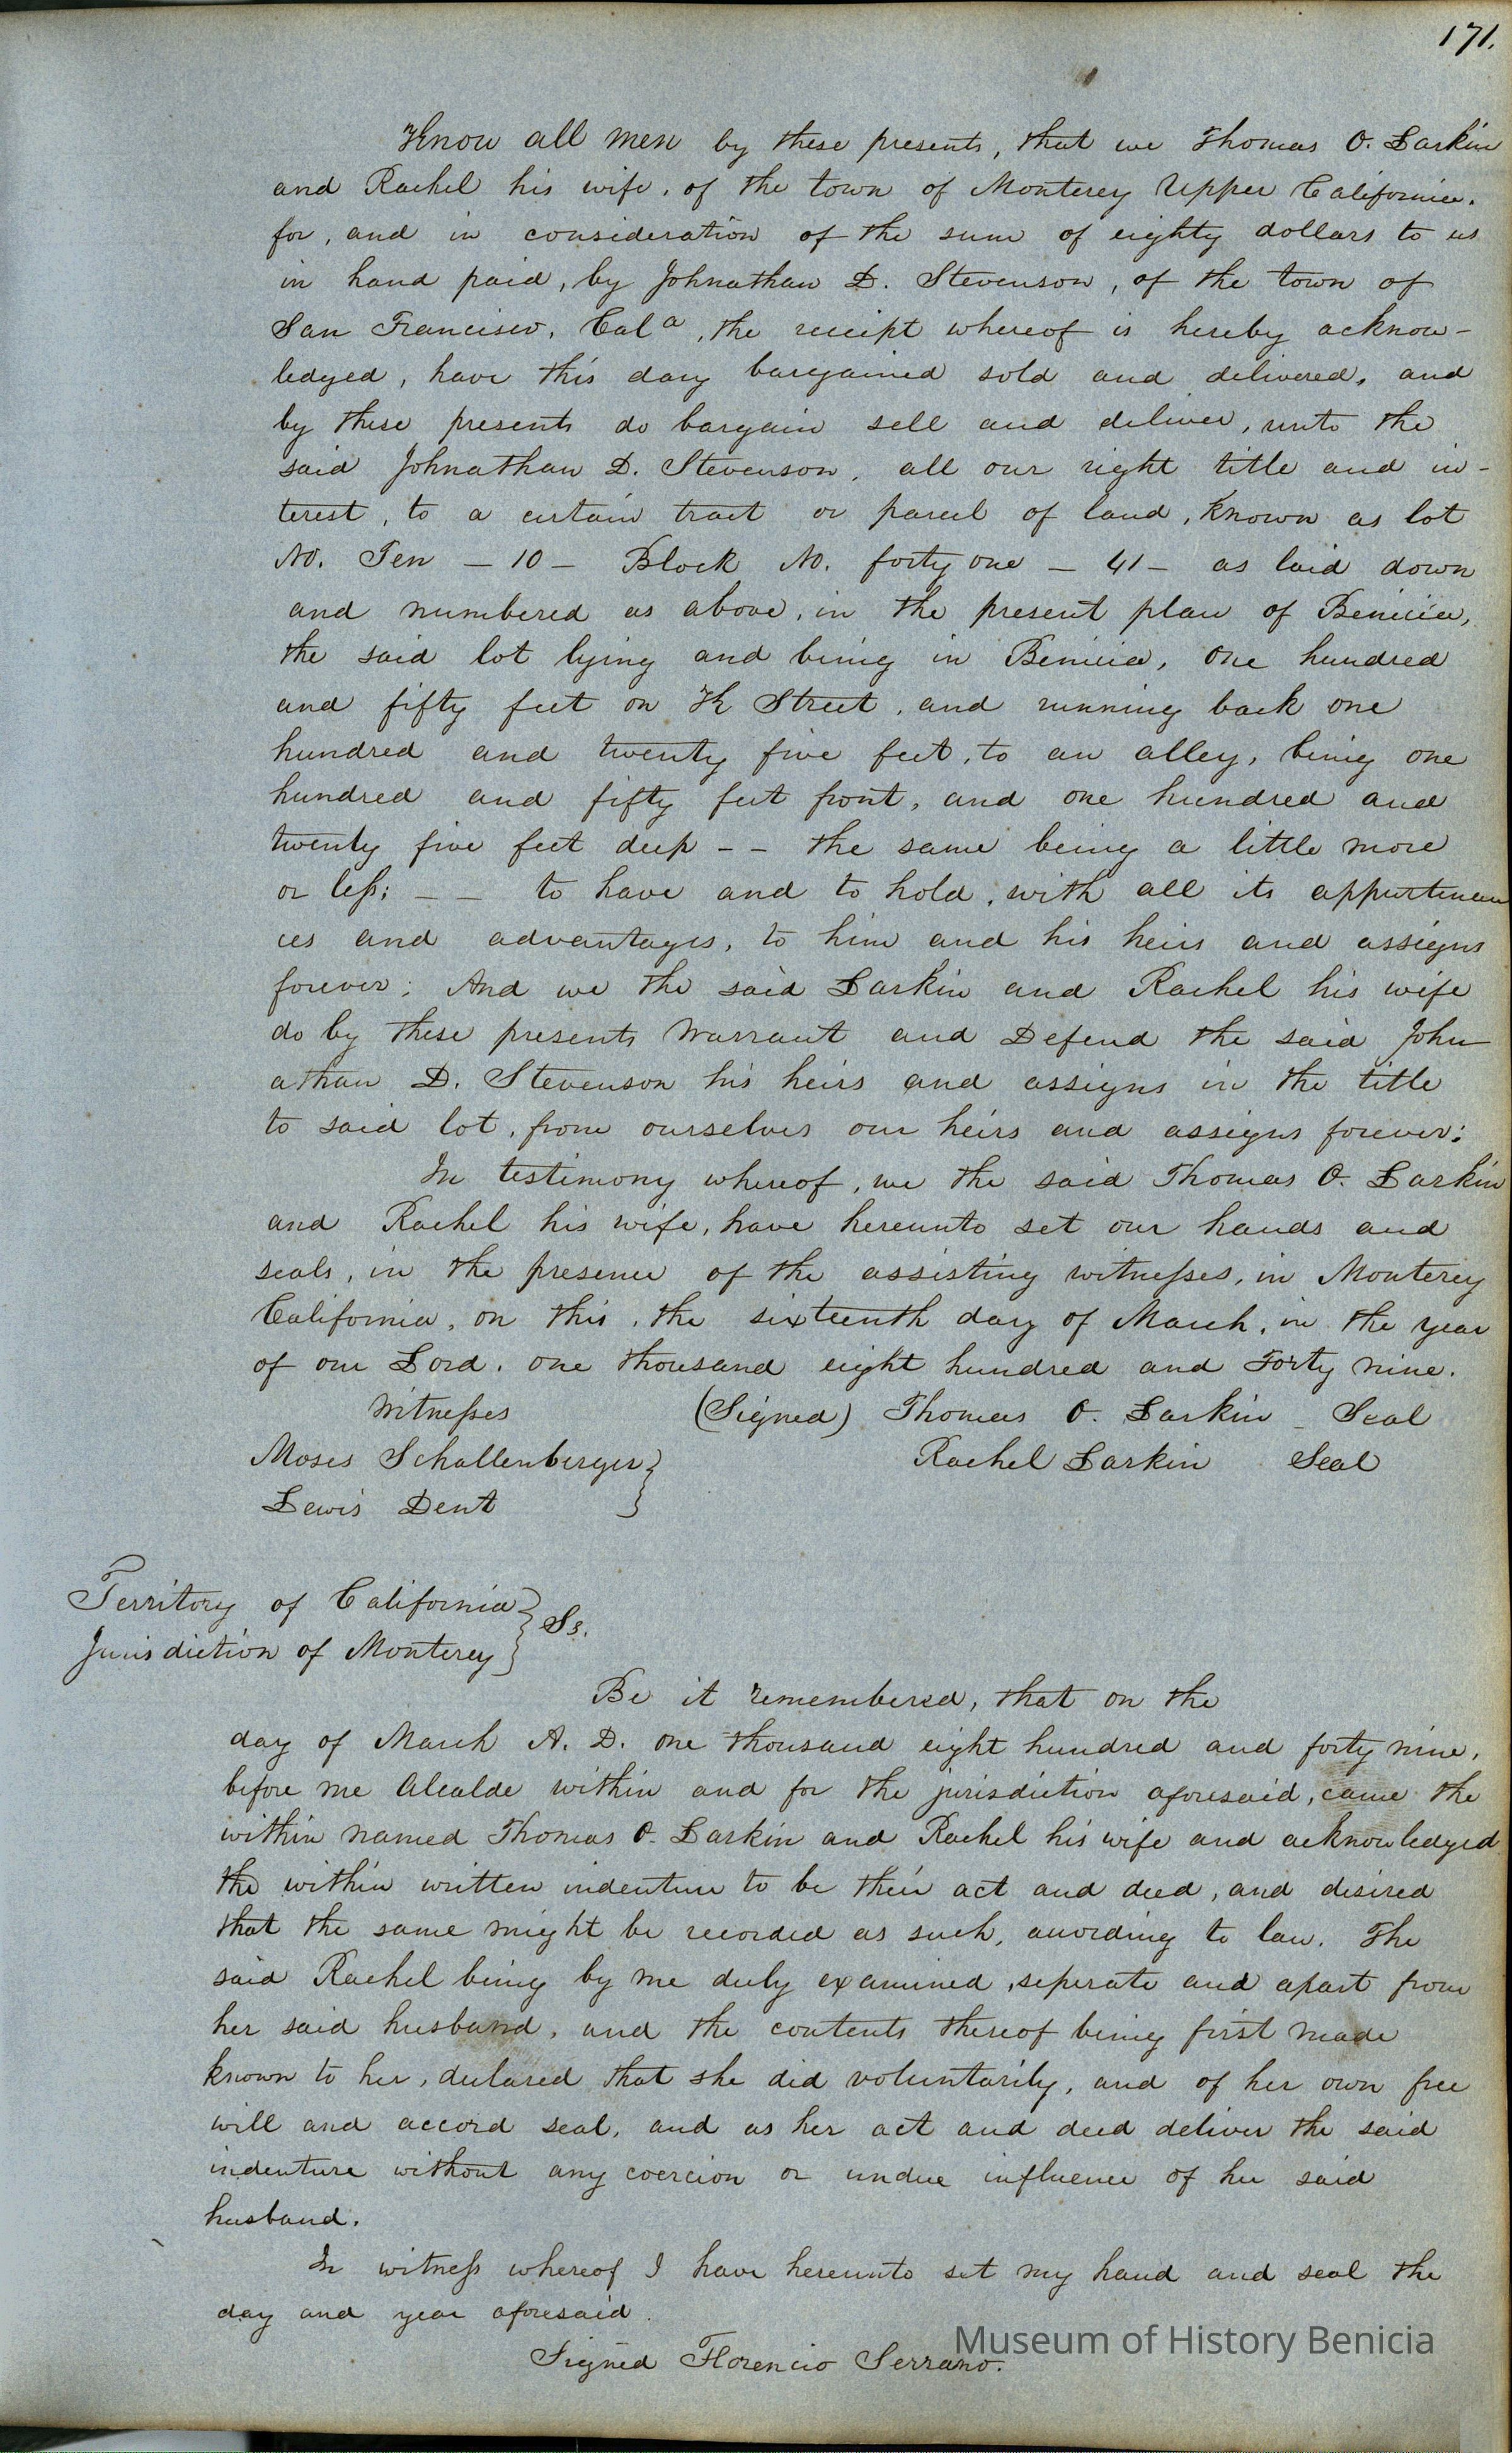 171.
Know all men by these presents, that we Thomas O. Larkin
and Rachel his wife, of the town of Monterey Upper California.
for, and in consideration of the sum of eighty dollars to us
in hand paid, by Johnathan D. Stevenson, of the town of
San Francisco, Cala, the receipt whereof is hereby acknow-
ledged, have this day bargained sold and delivered, and
by these presents do bargain sell and deliver, unto the
said Johnathan D. Stevenson, all our right title and in-
terest, to a certain tract or parcel of land, known as lot
No. Ten - 10 - Block No. forty one - 41 - as laid down
and numbered as above, in the present plan of Benicia,
the said lot lying and being in Benicia, one hundred
and fifty feet on K Street, and running back one
hundred and twenty five feet, to an alley, being one
hundred and fifty feet front, and one hundred and
twenty five feet deep - - the same being a little more
or less; - - to have and to hold, with all its appurtenan
ces and advantages, to him and his heirs and assigns
forever; And we the said Larkin and Rachel his wife
do by these presents Warrant and Defend the said John
athan D. Stevenson his heirs and assigns in the title
to said lot, from ourselves our heirs and assigns forever:
In testimony whereof, we the said Thomas O. Larkin
and Rachel his wife, have hereunto set our hands and
seals, in the presence of the assisting witnesses, in Monterey
California, on this, the sixteenth day of March, in the year
of our Lord, one thousand eight hundred and Forty nine.
Witnesses (Signed) Thomas O. Larkin - Seal
Moses Schallenberger } Rachel Larkin Seal
Lewis Dent
Territory of California } Ss.
Jurisdiction of Monterey
Be it remembered, that on the
day of March A. D. one thousand eight hundred and forty nine,
before me Alcalde within and for the jurisdiction aforesaid, came the
within named Thomas O. Larkin and Rachel his wife and acknowledged
the within written indenture to be their act and deed, and disired
that the same might be recorded as such, according to law. The
said Rachel being by me duly examined, seperate and apart from
her said husband, and the contents thereof being first made
known to her, declared that she did voluntarily, and of her own free
will and accord seal, and as her act and deed deliver the said
indenture without any coercion or undue influence of her said
husband.
In witness whereof I have hereunto set my hand and seal the
day and year aforesaid.
Signed Florencio Serrano.
Museum of History Benicia